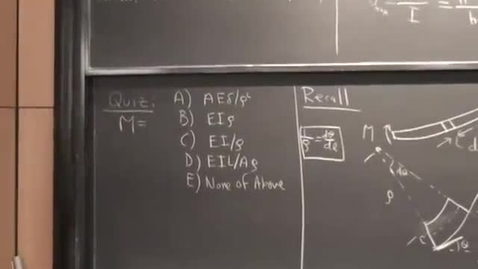 I
b
Quiz:
M=
A) AES/ρ
B) EIρ
C) EI/ρ
D) EIL/Aρ
E) None of Above
Recall
1/ρ = dθ/ds
M
dθ
ρ